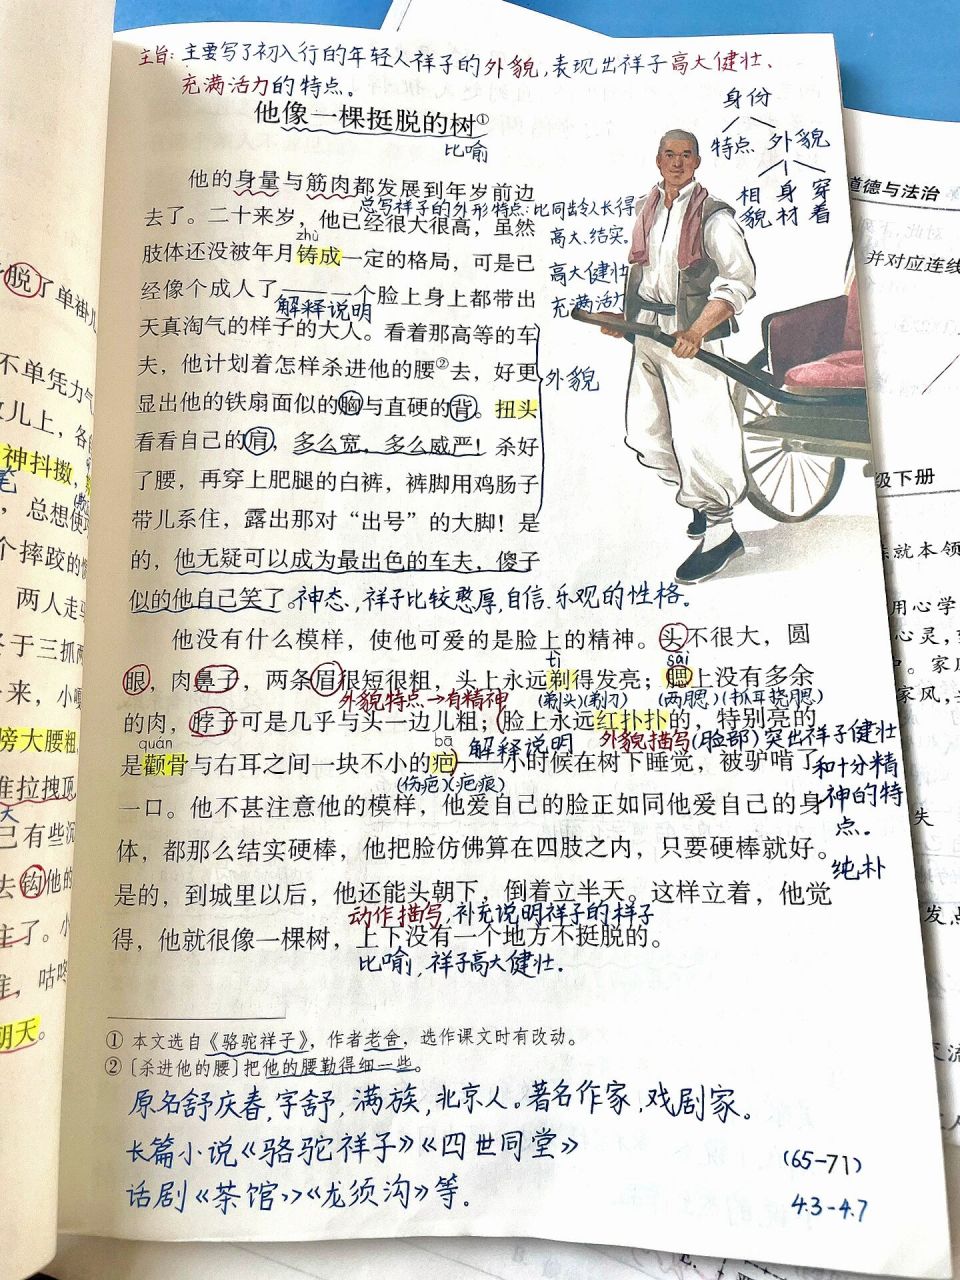 主旨:主要写了初入行的年轻人祥子的外貌,表现出祥子高大健壮、
充满活力的特点。
他像一棵挺脱的树①
比喻
身份
特点 外貌
相貌 身材 穿着
他的身量与筋肉都发展到年岁前边
总写祥子的外形特点:比同龄人长得
高大、结实。
去了。二十来岁,他已经很大很高,虽然
zhù
肢体还没被年月铸成一定的格局,可是已
高大健壮
充满活力
经像个成人了——一个脸上身上都带出
解释说明
天真淘气的样子的大人。看着那高等的车
夫,他计划着怎样杀进他的腰②去,好更
外貌
显出他的铁扇面似的胸与直硬的背。扭头
看看自己的肩,多么宽,多么威严!杀好
了腰,再穿上肥腿的白裤,裤脚用鸡肠子
带儿系住,露出那对“出号”的大脚!是
的,他无疑可以成为最出色的车夫,傻子
似的他自己笑了。
神态,祥子比较憨厚,自信、乐观的性格。
他没有什么模样,使他可爱的是脸上的精神。头不很大,圆
tì sāi
眼,肉鼻子,两条眉很短很粗,头上永远剃得发亮;腮上没有多余
外貌特点→有精神 (剃头)(剃刀) (两腮)(抓耳挠腮)
的肉,脖子可是几乎与头一边儿粗;脸上永远红扑扑的,特别亮的
quán bā
解释说明 外貌描写(脸部)突出祥子健壮
和十分精
神的特
点。
是颧骨与右耳之间一块不小的疤——小时候在树下睡觉,被驴啃了
(伤疤)(疤痕)
一口。他不甚注意他的模样,他爱自己的脸正如同他爱自己的身
体,都那么结实硬棒,他把脸仿佛算在四肢之内,只要硬棒就好。
纯朴
是的,到城里以后,他还能头朝下,倒着立半天。这样立着,他觉
动作描写,补充说明祥子的样子
得,他就很像一棵树,上下没有一个地方不挺脱的。
比喻,祥子高大健壮.
① 本文选自《骆驼祥子》,作者老舍,选作课文时有改动。
② 〔杀进他的腰〕把他的腰勒得细一些。
原名舒庆春,字舒,满族,北京人。著名作家,戏剧家。
长篇小说《骆驼祥子》《四世同堂》
话剧《茶馆》《龙须沟》等.
(65-71)
4.3-4.7
脱了单褂儿
不单凭力气
儿上,各
神抖擞,
笔
,总想使
个摔跤的
两人走
于三抓两
来,小
膀大腰粗
推拉拽顶
已有些沉
去钩他的
住了。小
,咕咚
朝天。
道德与法治
并对应连线
级下册
就本领
用心学
心灵,
。家
家风,
失
发点